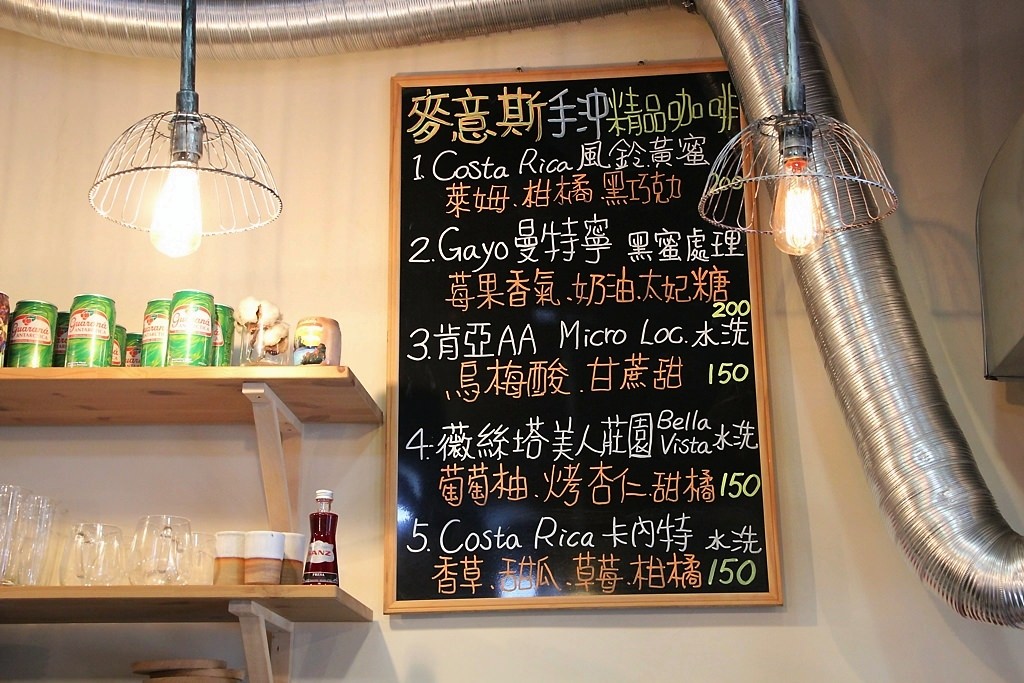 麥意斯手沖精品咖啡
1. Costa Rica 風鈴黃蜜
萊姆.柑橘.黑巧克力 200
2. Gayo 曼特寧 黑蜜處理
莓果香氣.奶油.太妃糖
200
3. 肯亞AA Micro Loc. 水洗
烏梅酸.甘蔗甜 150
4. 薇絲塔美人莊園 Bella Vista 水洗
葡萄柚.烤杏仁.甜橘 150
5. Costa Rica 卡內特 水洗
香草.甜瓜.草莓.柑橘 150
Guaraná
ANTARCTICA
Guaraná
ANTARCTICA
Guaraná
ANTARCTICA
Guaraná
ANTARCTICA